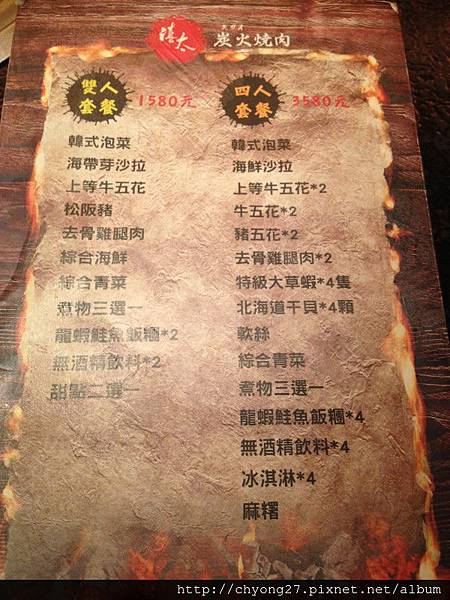 禧太 炭火燒肉
雙人套餐 1580元
韓式泡菜
海帶芽沙拉
上等牛五花
松阪豬
去骨雞腿肉
綜合海鮮
綜合青菜
煮物三選一
龍蝦鮭魚飯糰*2
無酒精飲料*2
甜點二選一
四人套餐 3580元
韓式泡菜
海鮮沙拉
上等牛五花*2
牛五花*2
豬五花*2
去骨雞腿肉*2
特級大草蝦*4隻
北海道干貝*4顆
軟絲
綜合青菜
煮物三選一
龍蝦鮭魚飯糰*4
無酒精飲料*4
冰淇淋*4
麻糬
http://chyong27.pixnet.net/album